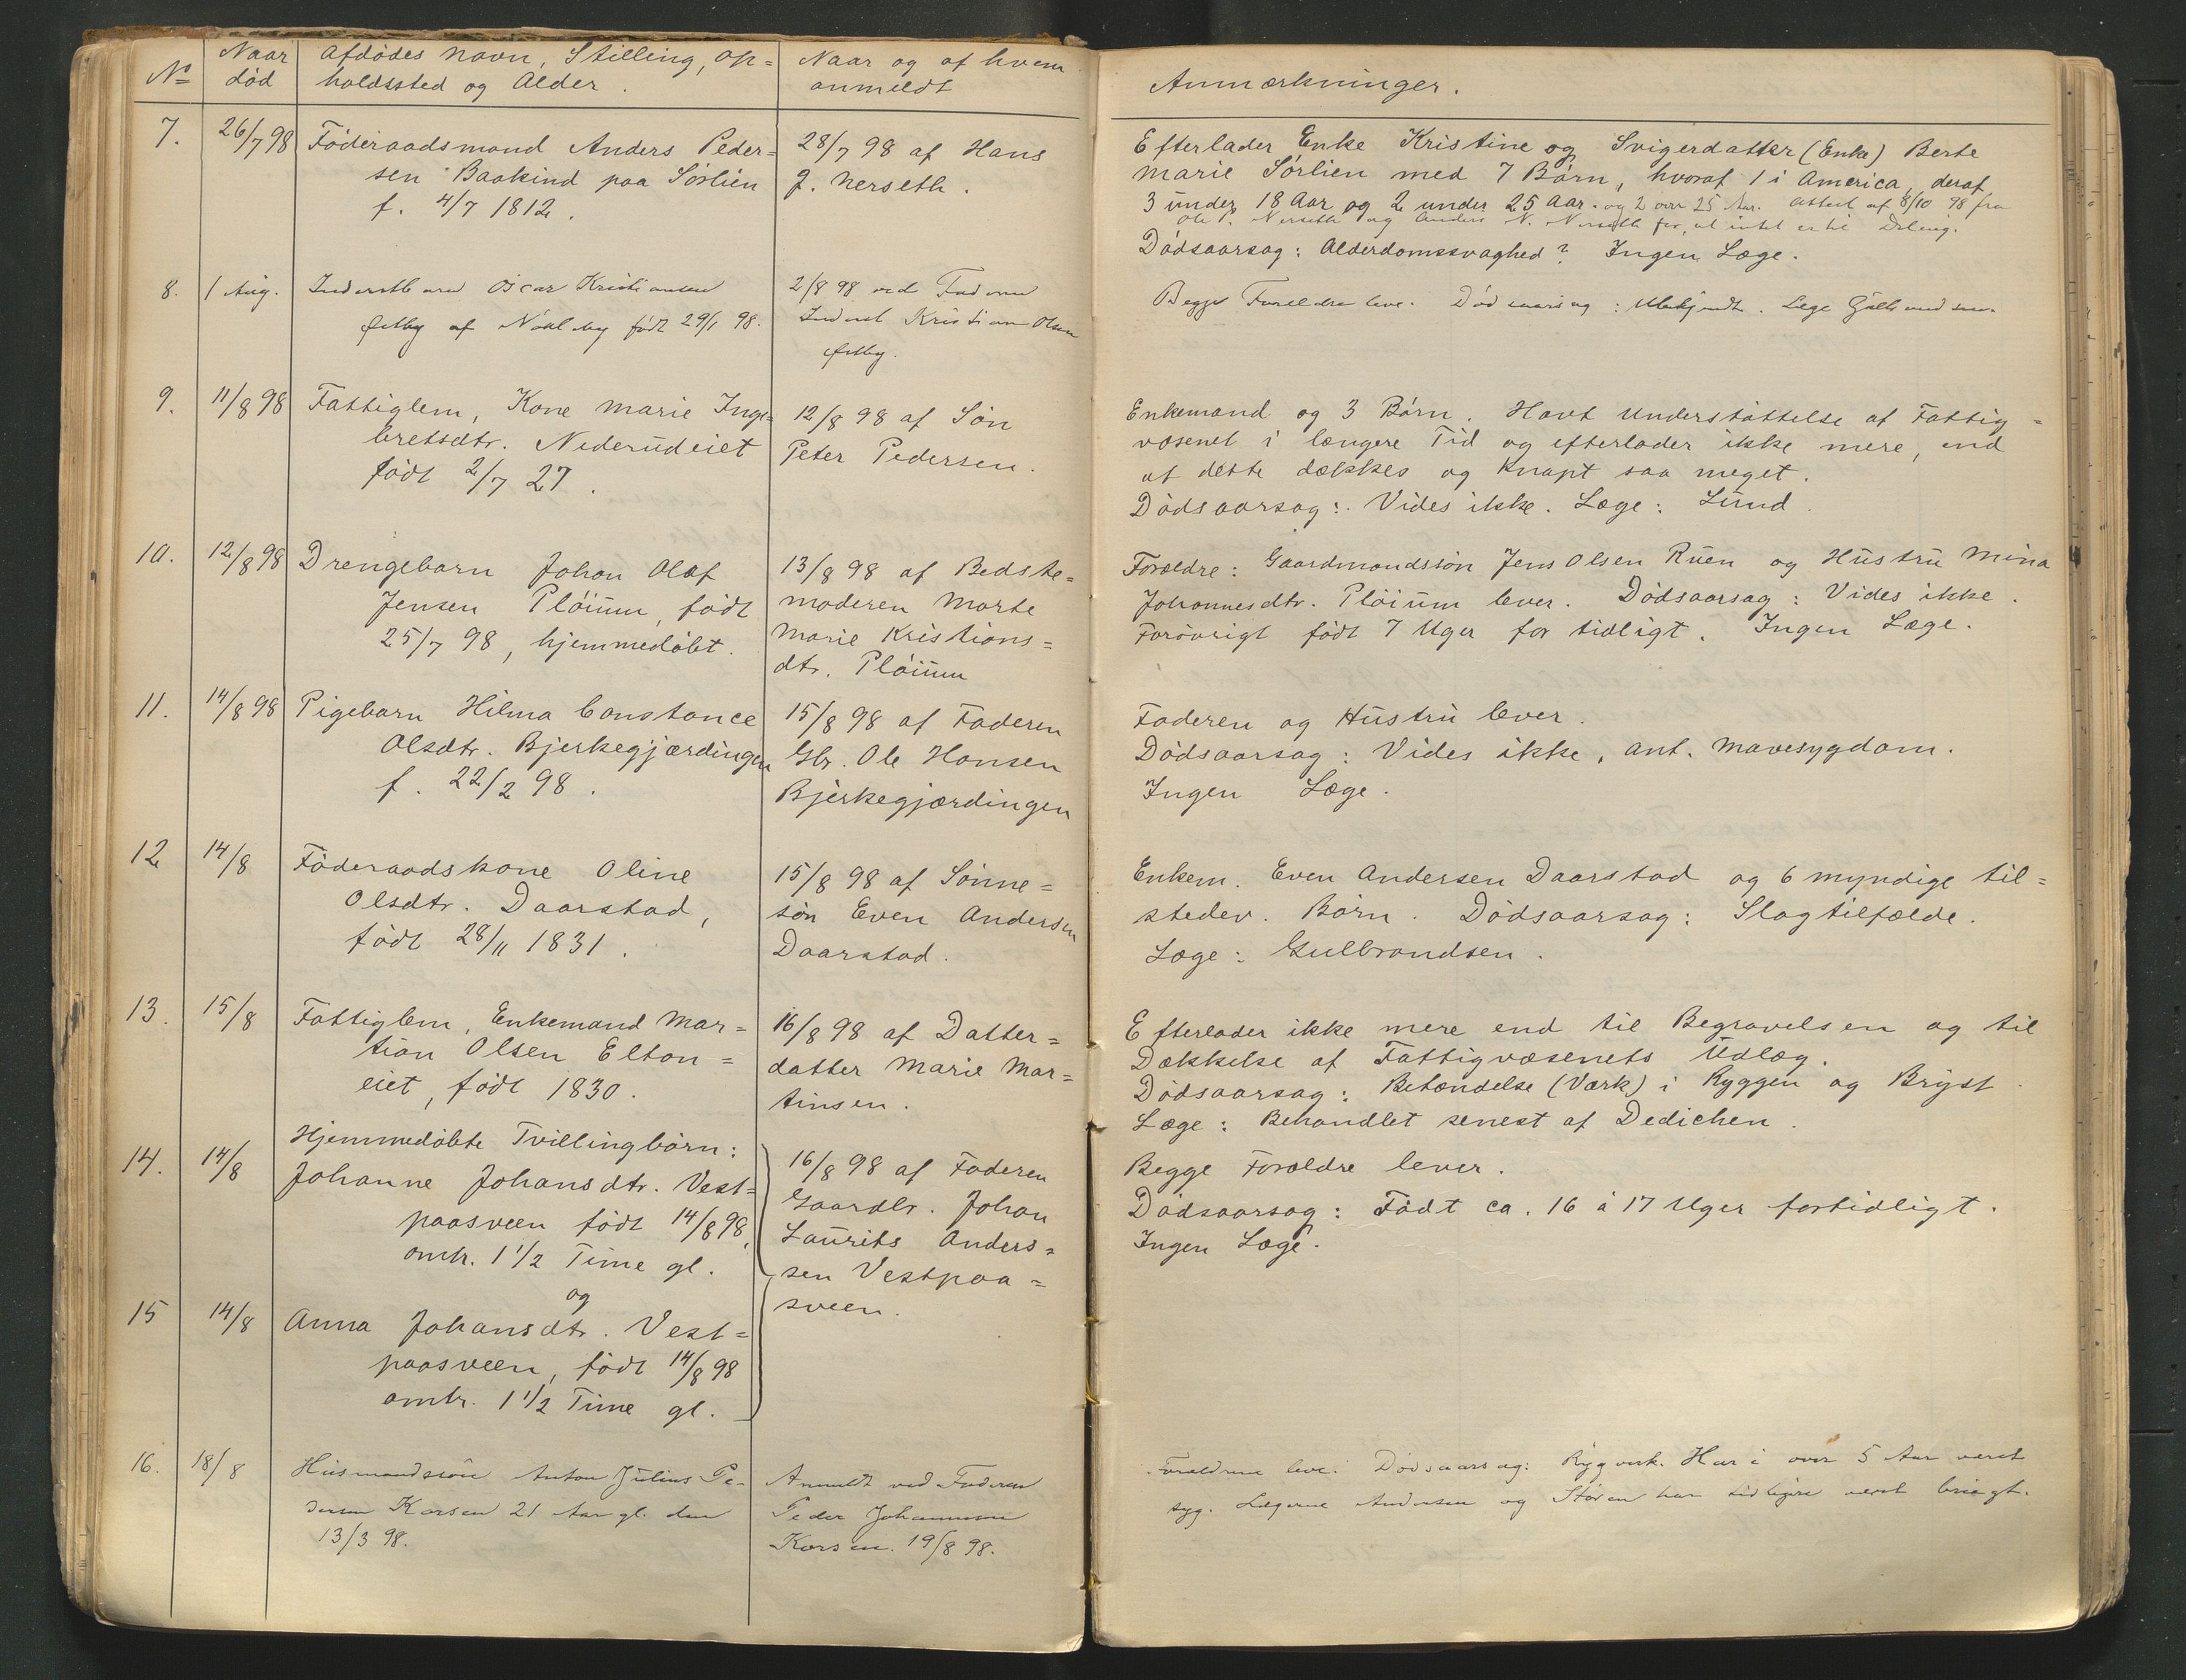 No
Naar
död
Afdödes Navn, Stilling, Op=
holdssted og Alder.
Naar og af hvem
anmeldt
Anmærkninger.
7.
26/7 98
Föderaadsmand Anders Peder=
sen Baakind paa Sörlien
f. 4/7 1812.
28/7 98 af Hans
J. Nerseth.
Efterlader Enke Kristine og Svigerdatter (Enke) Berte
Marie Sörlien med 7 Börn, hvoraf 1 i America, deraf
3 under 18 Aar og 2 under 25 Aar. og 2 over 25 Aar. Attest af 8/10 98 fra
Ole P. Nerseth og Anders N. Nerseth for, at intet er til Deling.
Dödsaarsag: Alderdomssvaghed? Ingen Læge.
8.
1 Aug.
Inderstbarn Oscar Kristiansen
Østby af Nöelsby födt 29/1 98.
2/8 98 ved Faderen
Inderst Kristian Olsen
Østby.
Begge Forældre lever. Dödsaarsag: Ubekjendt. Læge Gulbrandsen.
9.
11/8 98
Fattiglem, Kone Marie Inge=
bretsdtr. Nederudeiet
födt 2/7 27.
12/8 98 af Sön
Peter Pedersen.
Enkemand og 3 Börn. Havt Understöttelse af Fattig=
væsenet i længere Tid og efterlader ikke mere, end
at dette dækkes og knapt saa meget.
Dödsaarsag: Vides ikke. Læge: Lund.
10.
12/8 98
Drengebarn Johan Olaf
Jensen Plöium, födt
25/7 98, hjemmedöbt.
13/8 98 af Bedste=
moderen Marte
Marie Kristians=
dtr. Plöium
Forældre: Gaardmandssön Jens Olsen Ruen og Hustru Mina
Johannesdtr. Plöium lever. Dödsaarsag: Vides ikke.
Forövrigt födt 7 Uger for tidligt. Ingen Læge.
11.
14/8 98
Pigebarn Hilma Constance
Olsdtr. Bjerkegjærdingen
f. 22/2 98.
15/8 98 af Faderen
Gbr. Ole Hansen
Bjerkegjærdingen
Faderen og Hustru lever.
Dödsaarsag: Vides ikke, ant. Mavesygdom.
Ingen Læge.
12
14/8
Föderaadskone Oline
Olsdtr. Daarstad,
födt 28/11 1831.
15/8 98 af Sönne=
sön Even Andersen
Daarstad.
Enkem. Even Andersen Daarstad og 6 myndige til=
stedev. Börn. Dödsaarsag: Slagtilfælde.
Læge: Gulbrandsen.
13.
15/8
Fattiglem, Enkemand Mar=
tian Olsen Elton=
eiet, födt 1830.
16/8 98 af Datter=
datter Marie Mar=
tinsen.
Efterlader ikke mere end til Begravelsen og til
Dækkelse af Fattigvæsenets Udlæg.
Dödsaarsag: Betændelse (Værk) i Ryggen og Bryst.
Læge: Behandlet senest af Dedichen.
14.
14/8
Hjemmedöbte Tvillingbörn:
Johanne Johansdtr. Vest=
paasveen födt 14/8 98,
omtr. 1 1/2 Time gl.
og
16/8 98 af Faderen
Gaardbr. Johan
Laurits Anders=
sen Vestpaa=
sveen.
Begge Forældre lever.
Dödsaarsag: Födt ca. 16 à 17 Uger fortidligt.
Ingen Læge.
15
14/8
Anna Johansdtr. Vest=
paasveen, födt 14/8 98
omtr. 1 1/2 Time gl.
16.
18/8
Husmandssön Anton Julius Pe-
dersen Korsen 21 Aar gl. den
13/3 98.
Anmeldt ved Faderen
Peder Johannesen
Korsen. 19/8 98.
Forældrene lever. Dödsaarsag: Rygværk. Har i over 5 Aar været
syg. Lægerne Andersen og Stören har tidligere været brugt.